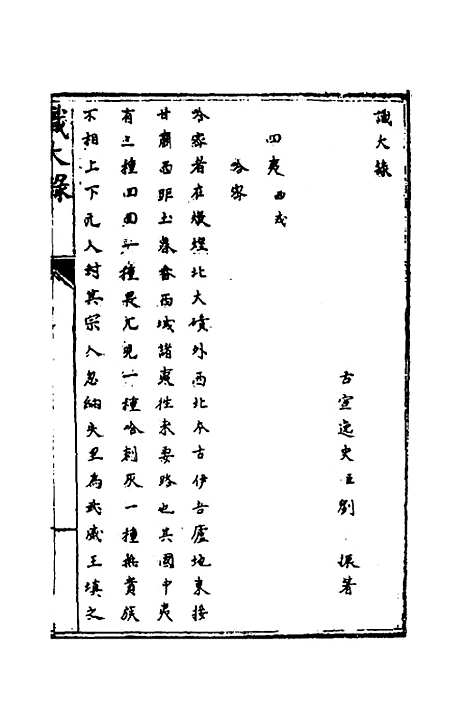 識大錄
古宣逸史臣劉振著
四夷西戎
哈密
哈密者在燉煌北大磧外西北本古伊吾廬地東接
甘肅西距土魯番西域諸夷徃来要路也其國中夷
有三種回回一種畏兀兒一種哈剌灰一種無貴族
不相上下元人封其宗人忽納失里為武威王填之
識大錄